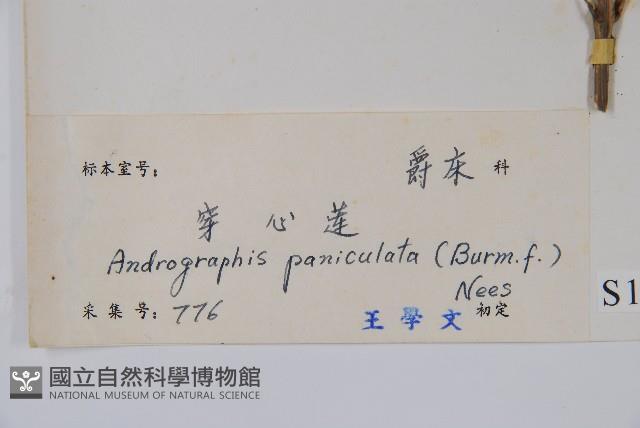 标本室号: 爵床科
穿心莲
Andrographis paniculata (Burm.f.)
Nees
采集号: 776 王學文 初定
S1
國立自然科學博物館
NATIONAL MUSEUM OF NATURAL SCIENCE